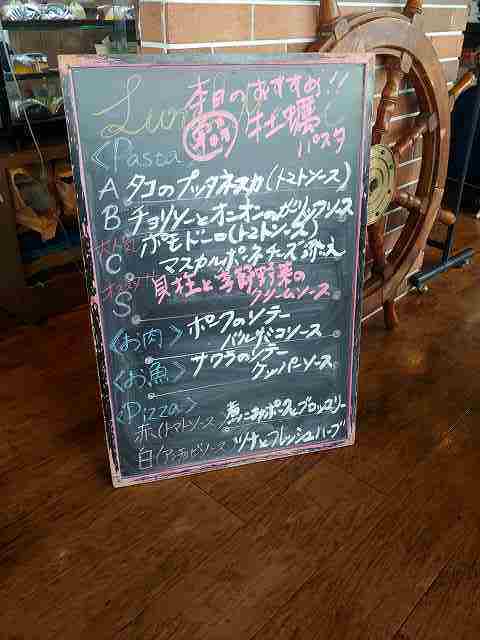 Lunch
本日のおすすめ!!
牡蠣
パスタ
<Pasta
A タコのプッタネスカ(トマトソース)
B チョリソーとオニオンのガーリックソース
C ポモドーロ(トマトソース)
マスカルポーネチーズ添え
S 貝柱と季節野菜の
クリームソース
<お肉> ポークのソテー
バルサミコソース
<お魚> サワラのソテー
ケッパーソース
<Pizza>
赤(トマトソース
白(アンチョビソース ツナとフレッシュハーブ